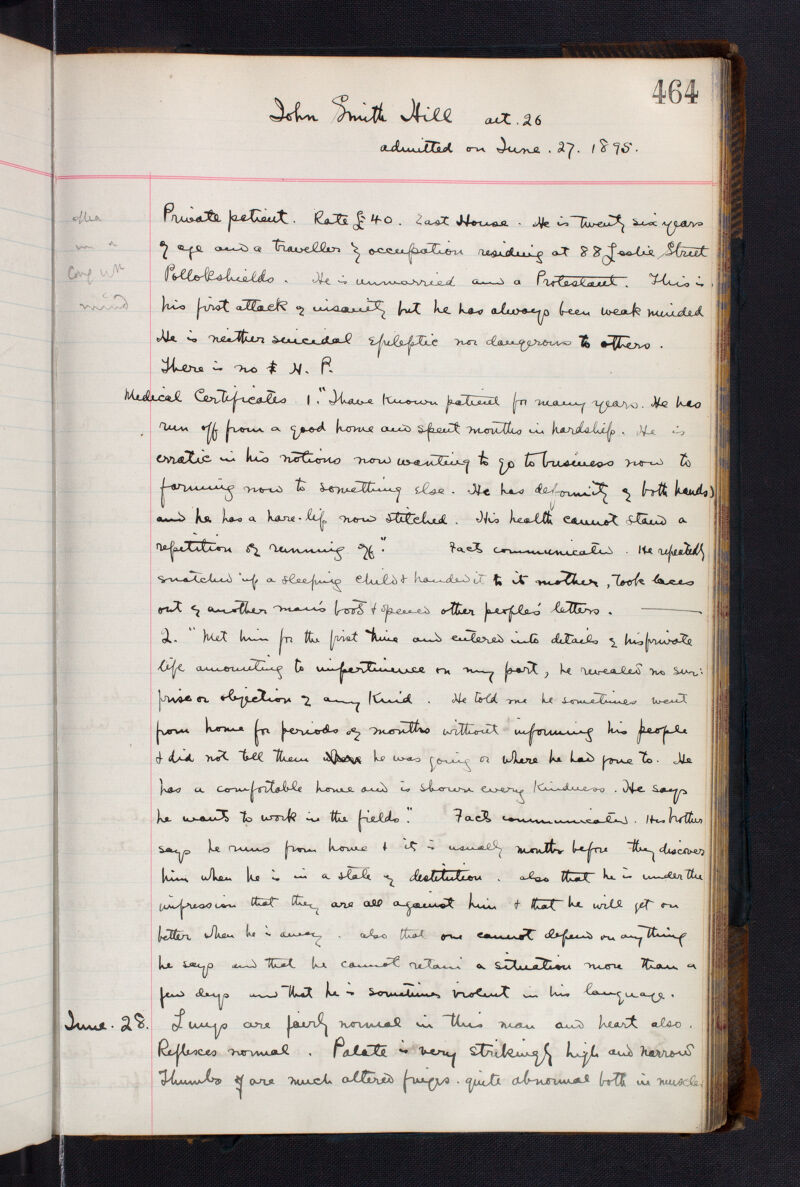 464
John Smith Hill aet. 26
admitted on June. 27. 1895.
Private patient. Rate £40. East House. He is twenty six years
of age and a traveller by occupation residing at 88 Leslie Street
Pollokshields. He is unmarried and a Protestant. This is
his first attack of insanity but he has always been weak minded
He is neither suicidal epileptic nor dangerous to others.
There is no H. P.
Medical Certificates 1. "I have known patient for many years. He has
run off from a good home and spent months in hardship. He is
erratic in his notions now wanting to go to business now to
farming now to something else. He has deformity of both hands
and he has a hare-lip now stitched. His health cannot stand a
repetition of running off." Facts communicated. He repeatedly
snatched up a sleeping child & handed it to its mother, took laces
out of another man's boots & opened other people's letters.
2. "Met him for the first time and entered into details of his private
life amounting to impertinence on my part, he revealed no sur:
prise or objection of any kind. He told me he sometimes went
from home for periods of months without informing his people
& did not tell them he was going or where he had gone to. He
has a comfortable home and is shown every kindness. He says
he wants to work in the fields." Facts communicated. His brother
says he runs from home & it is usually months before they discover
him when he is in a state of destitution. also that he is under the
impression that they are all against him & that he will get on
better when he is away. also that one cannot depend on anything
he says and that he cannot retain a situation more than a
few days and that he is sometimes violent in his language.
June. 28. Lungs are fairly normal in this man and heart also.
Reflexes normal. Palate is very strikingly high and narrow
Thumbs are much altered quite abnormal both in muscle